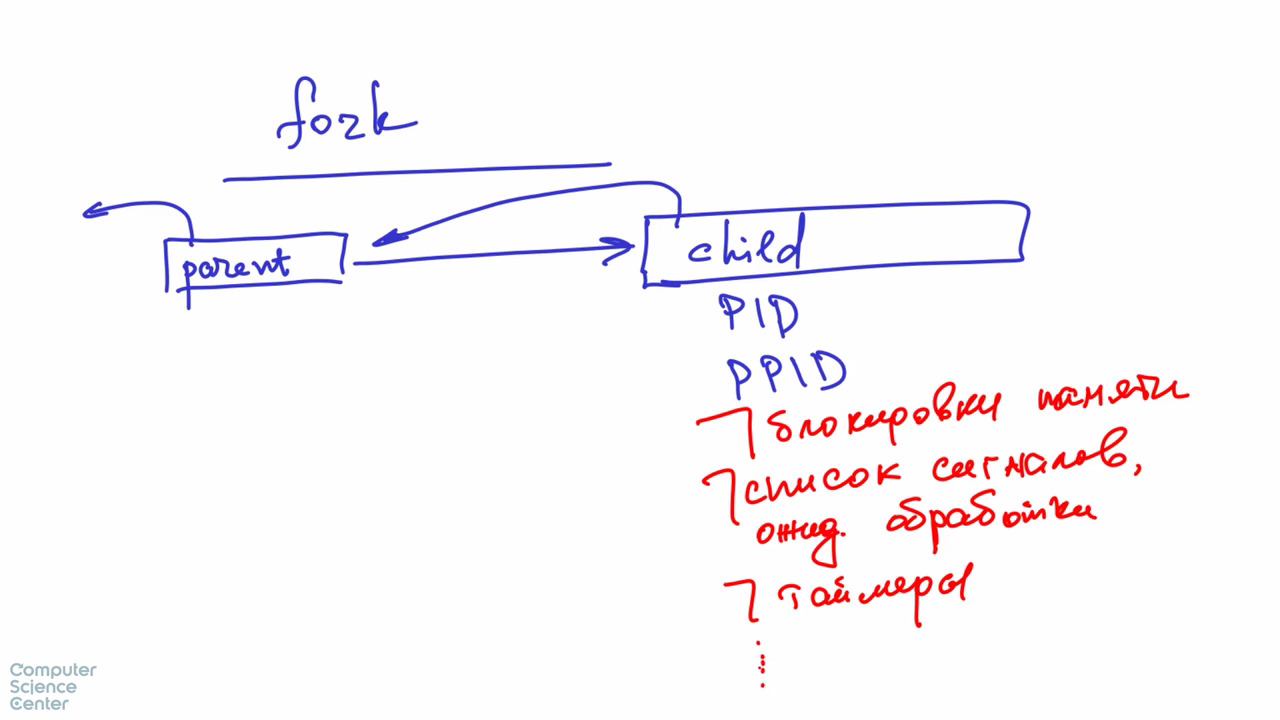 fork
parent
child
PID
PPID
¬ блокировки памяти
¬ список сигналов,
ожид. обработки
¬ таймеры
Computer
Science
Center